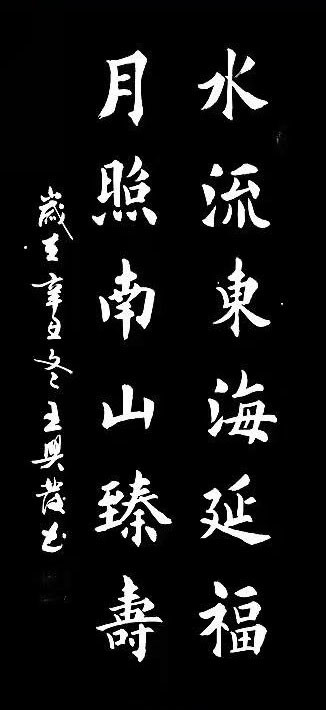 水流東海延福
月照南山臻壽
歲在辛丑冬王興發書